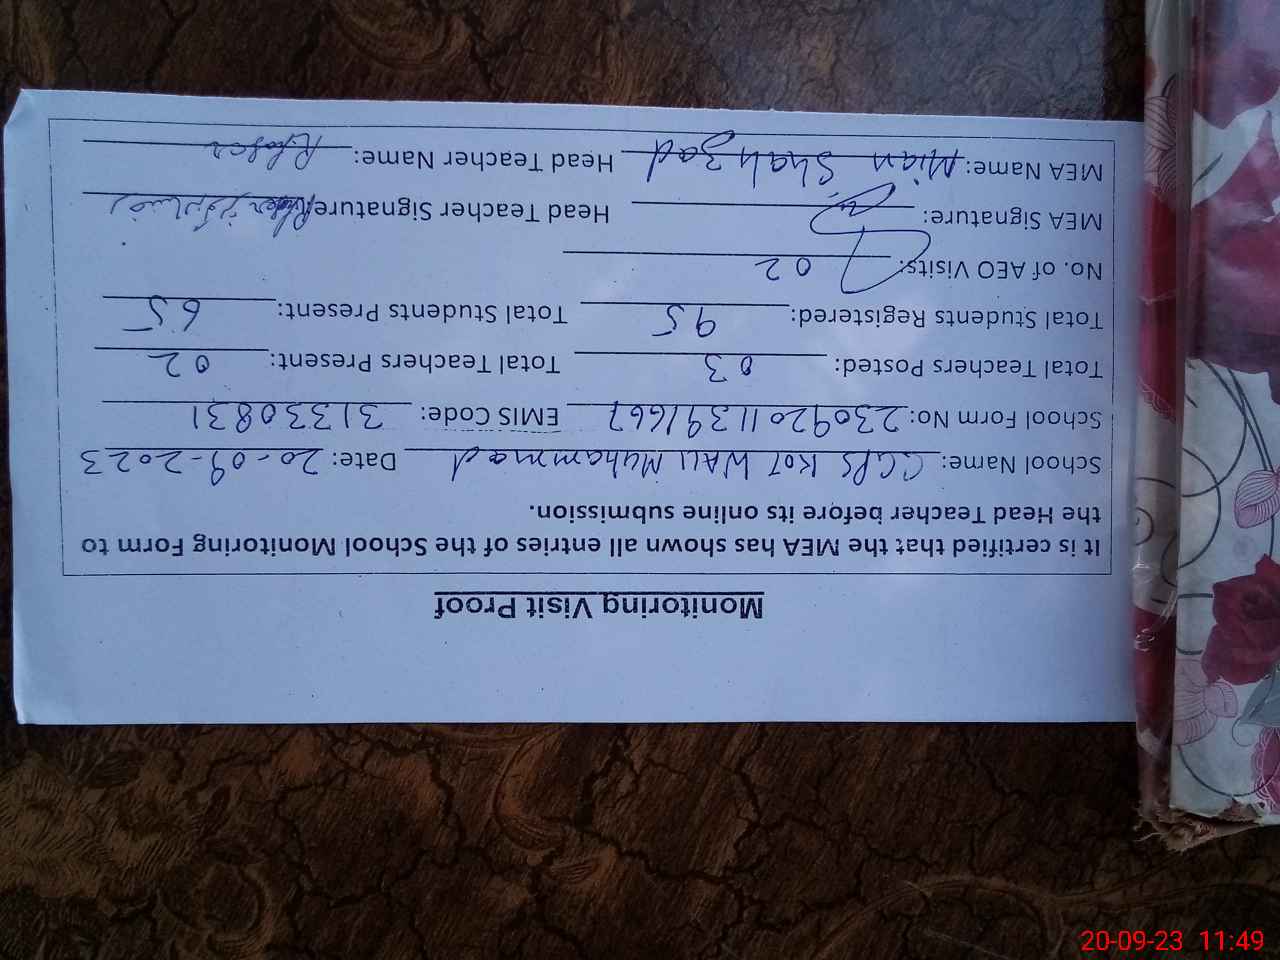 Monitoring Visit Proof
It is certified that the MEA has shown all entries of the School Monitoring Form to
the Head Teacher before its online submission.
School Name: GGPS KOT WALI Muhammad Date: 20-09-2023
School Form No: 23092011391667 EMIS Code: 31330831
Total Teachers Posted: 03 Total Teachers Present: 02
Total Students Registered: 95 Total Students Present: 65
No. of AEO Visits: 02
MEA Signature: Head Teacher Signature
MEA Name: Mian Shahzad Head Teacher Name:
20-09-23 11:49